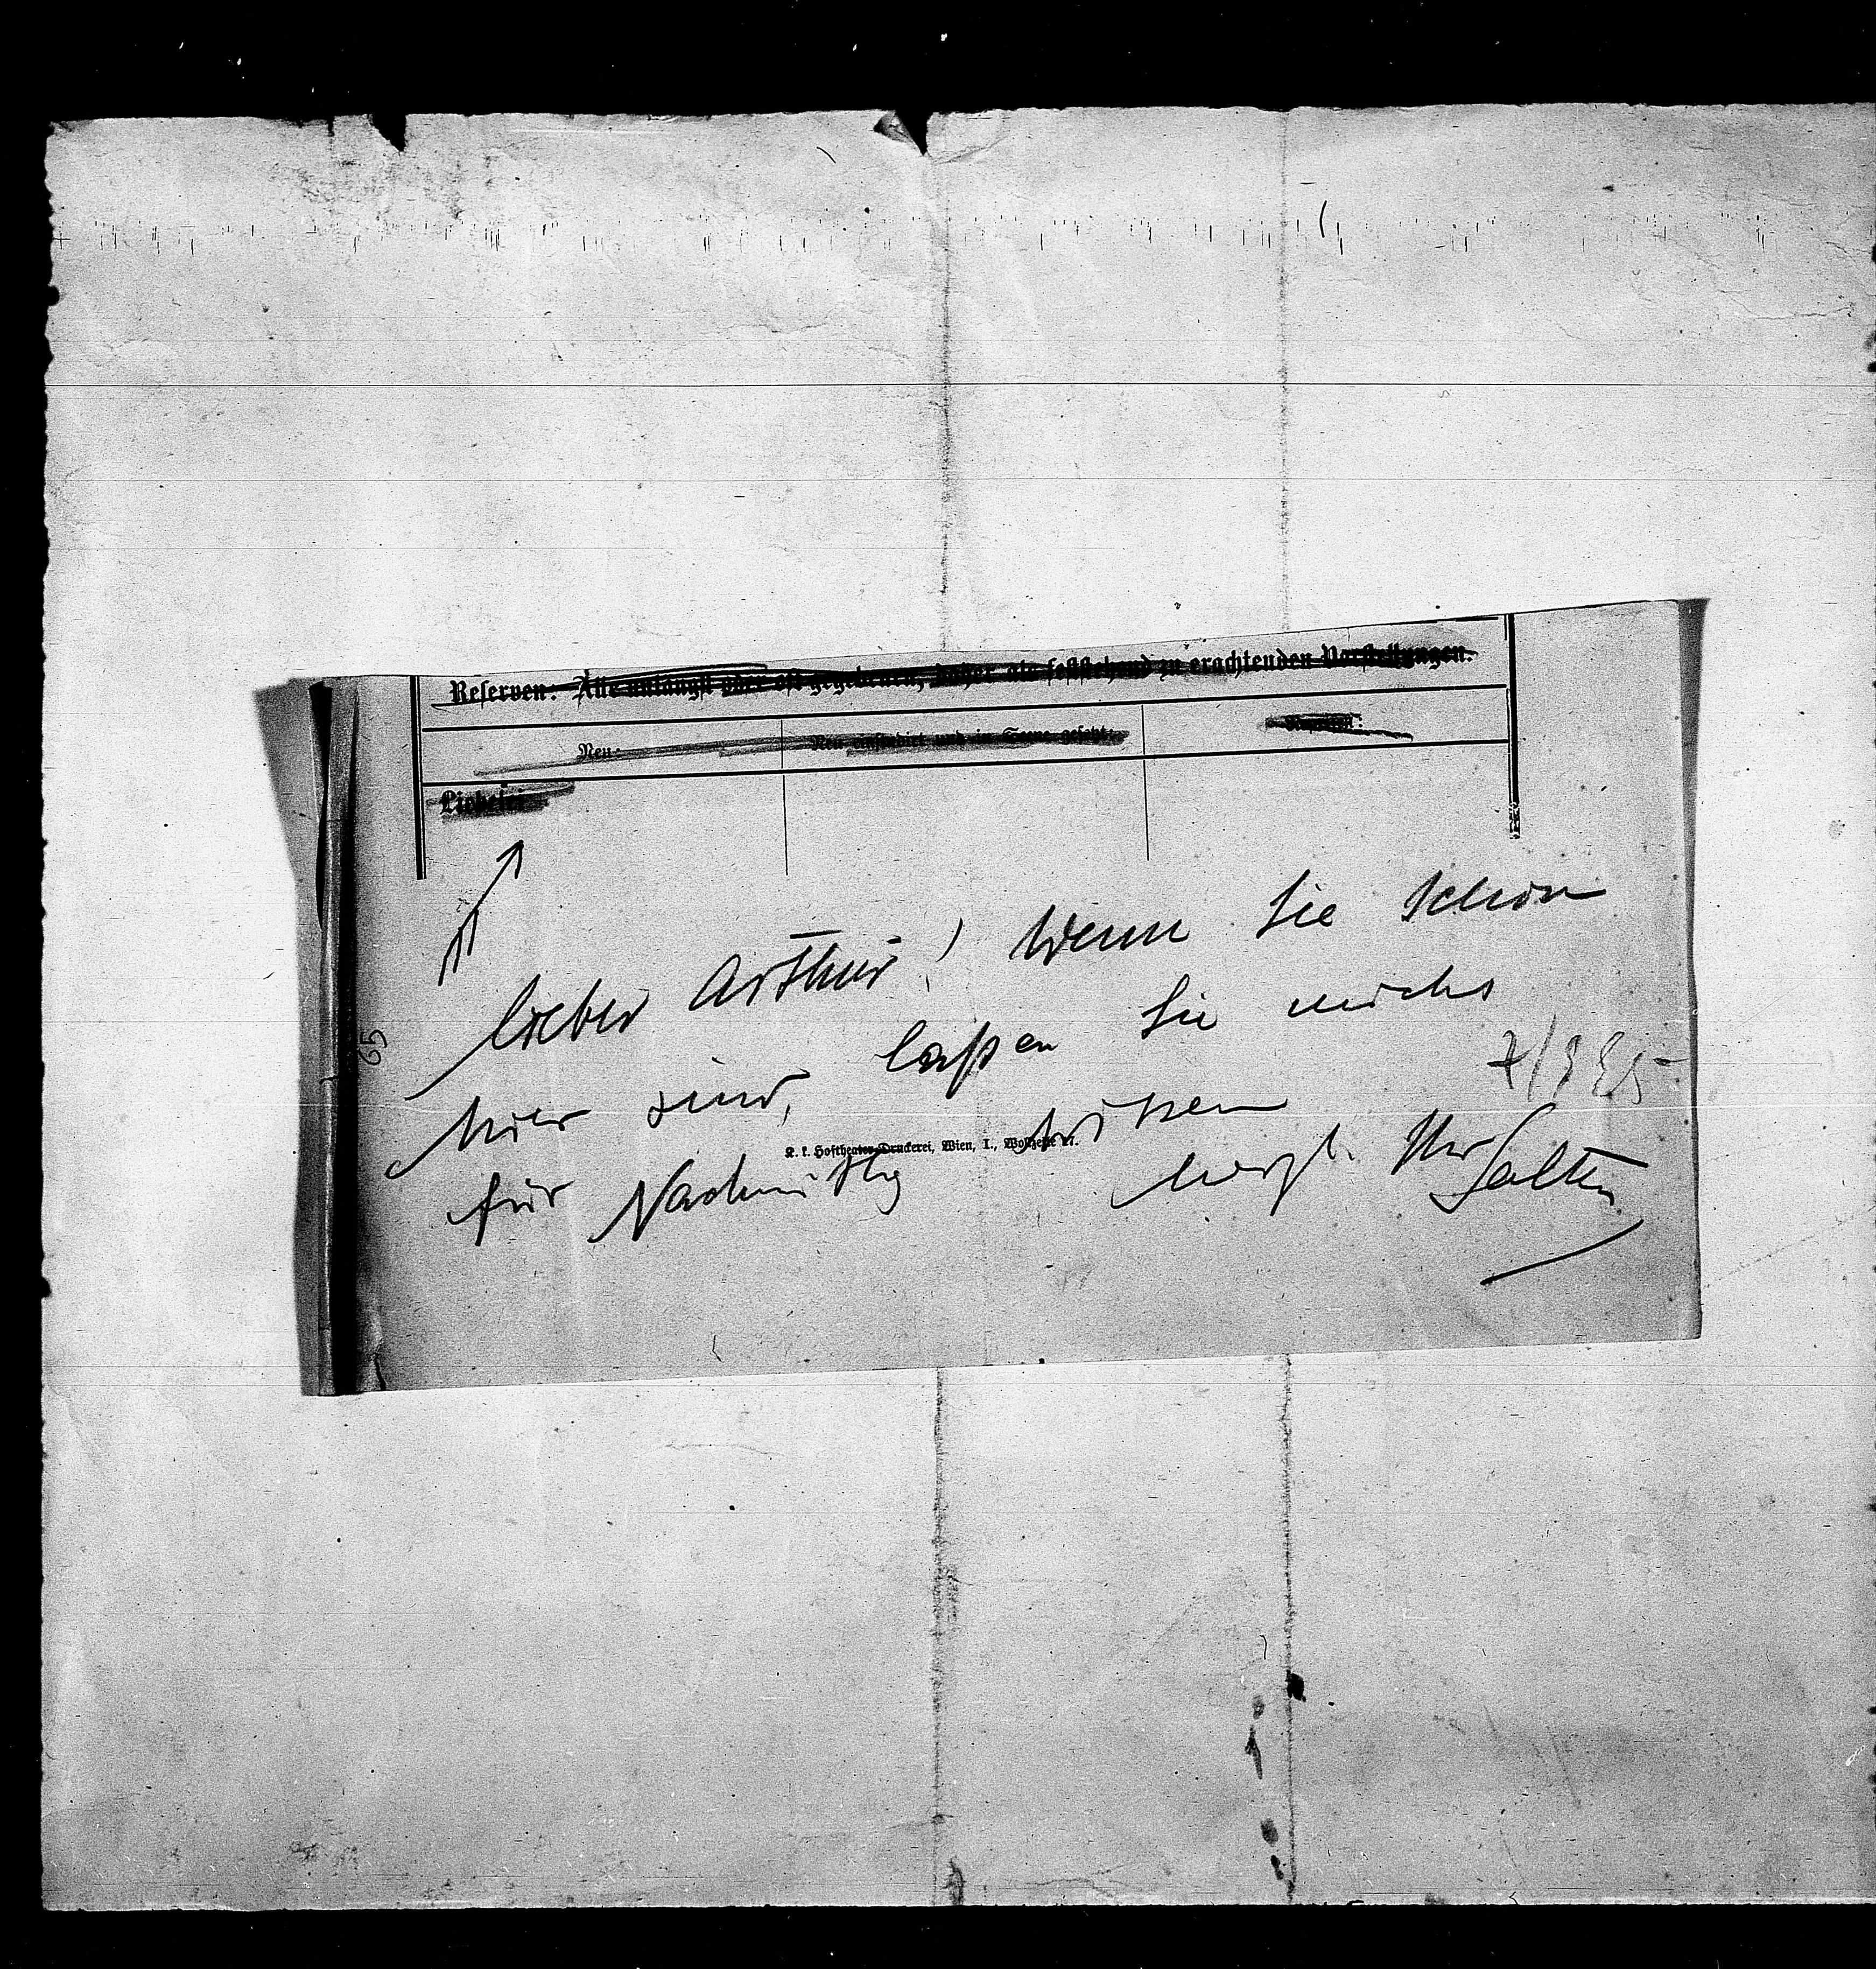 Reserven: Alle unlängst oder oft gegebenen, daher als feststehend zu erachtenden Vorstellungen.
Neu: Neu einstudirt und in Scene gesetzt:
Liebelei
lieber Arthur! Wenn Sie schon
hier sind, laßen Sie michs
für Nachmittg wißen
7/9 95
herzl. Ihr
Salten
K. k. Hoftheater-Druckerei, Wien, I., Wollzeile 17.
65